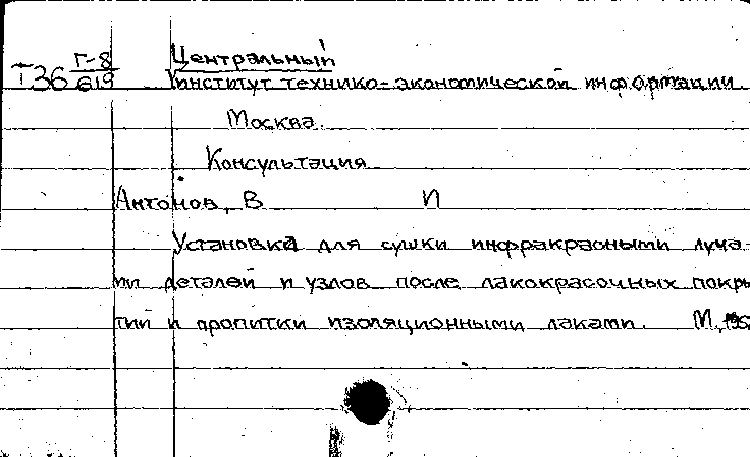 Т36 Г-8 Центральный
619 Институт технико-экономической информации
Москва.
Консультация
Антонов, В И
Установка для сушки инфракрасными луча-
ми деталей и узлов после лакокрасочных покры
тий и пропитки изоляционными лаками. М,